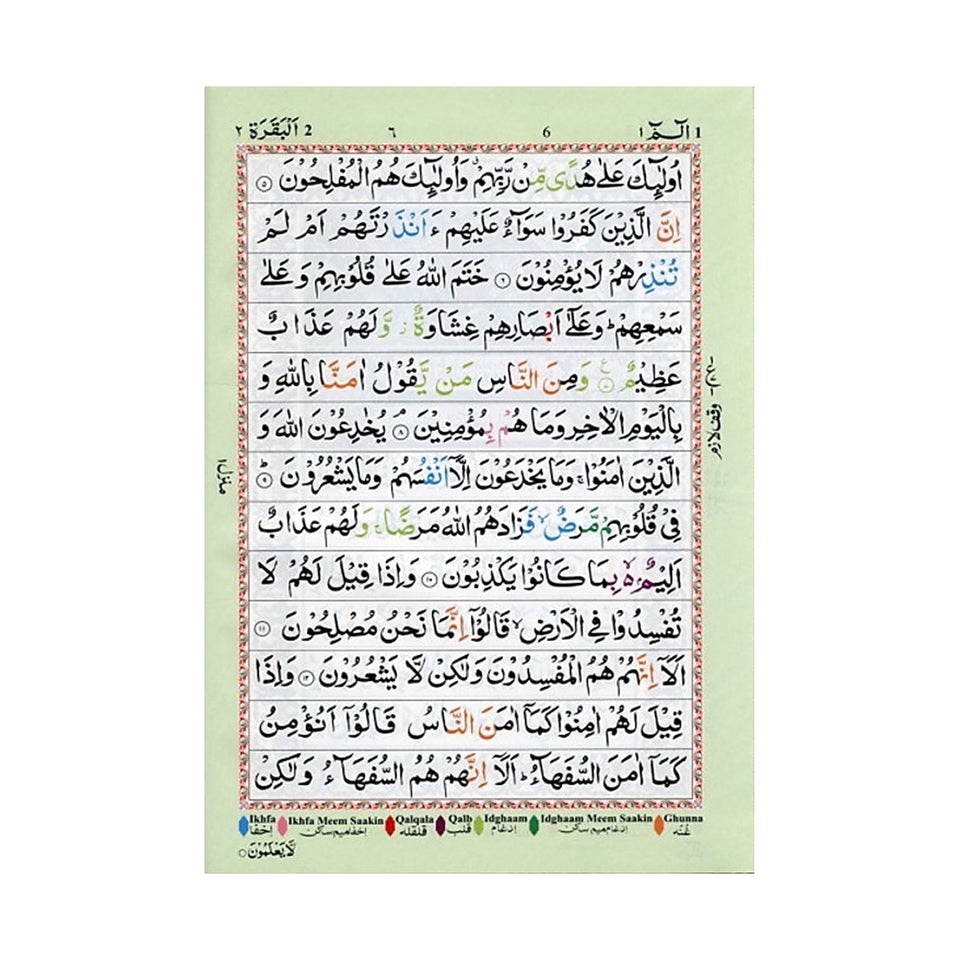 الٓمّٓ ١ 1 6 ٦ 2 اَلْبَقَرَة ٢
اُولٰٓئِكَ عَلٰى هُدًى مِّنْ رَّبِّهِمْ ۗ وَاُولٰٓئِكَ هُمُ الْمُفْلِحُوْنَ ۝٥
اِنَّ الَّذِيْنَ كَفَرُوْا سَوَآءٌ عَلَيْهِمْ ءَاَنْذَرْتَهُمْ اَمْ لَمْ
تُنْذِرْهُمْ لَا يُؤْمِنُوْنَ ۝٦ خَتَمَ اللّٰهُ عَلٰى قُلُوْبِهِمْ وَعَلٰى
سَمْعِهِمْ ؕ وَعَلٰٓى اَبْصَارِهِمْ غِشَاوَةٌ ؗ وَّلَهُمْ عَذَابٌ
عَظِيْمٌ ۝٧ ع وَمِنَ النَّاسِ مَنْ يَّقُوْلُ اٰمَنَّا بِاللّٰهِ وَ
بِالْيَوْمِ الْاٰخِرِ وَمَا هُمْ بِمُؤْمِنِيْنَ ۘ ۝٨ يُخٰدِعُوْنَ اللّٰهَ وَ
الَّذِيْنَ اٰمَنُوْا ۚ وَمَا يَخْدَعُوْنَ اِلَّآ اَنْفُسَهُمْ وَمَا يَشْعُرُوْنَ ؕ ۝٩
فِىْ قُلُوْبِهِمْ مَّرَضٌ ۙ فَزَادَهُمُ اللّٰهُ مَرَضًا ۚ وَلَهُمْ عَذَابٌ
اَلِيْمٌ ۢ ۙ بِمَا كَانُوْا يَكْذِبُوْنَ ۝١٠ وَاِذَا قِيْلَ لَهُمْ لَا
تُفْسِدُوْا فِى الْاَرْضِ ۙ قَالُوْٓا اِنَّمَا نَحْنُ مُصْلِحُوْنَ ۝١١
اَلَآ اِنَّهُمْ هُمُ الْمُفْسِدُوْنَ وَلٰكِنْ لَّا يَشْعُرُوْنَ ۝١٢ وَاِذَا
قِيْلَ لَهُمْ اٰمِنُوْا كَمَآ اٰمَنَ النَّاسُ قَالُوْٓا اَنُؤْمِنُ
كَمَآ اٰمَنَ السُّفَهَآءُ ؕ اَلَآ اِنَّهُمْ هُمُ السُّفَهَآءُ وَلٰكِنْ
وقف لازم
منزل ١
Ikhfa Ikhfa Meem Saakin Qalqala Qalb Idghaam Idghaam Meem Saakin Ghunna
إخفا إخفا میم ساکن قلقله قلب إدغام إدغام میم ساکن غُنّه
لَّا يَعْلَمُوْنَ